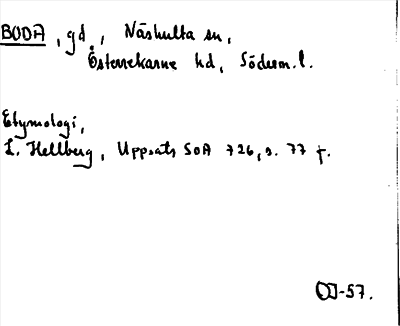 BODA, gd., Näshulta sn,
Österrekarne hd, Söderm.l.
Etymologi,
L. Hellberg, Uppsats SOA 726, s. 77 f.
OJ-57.